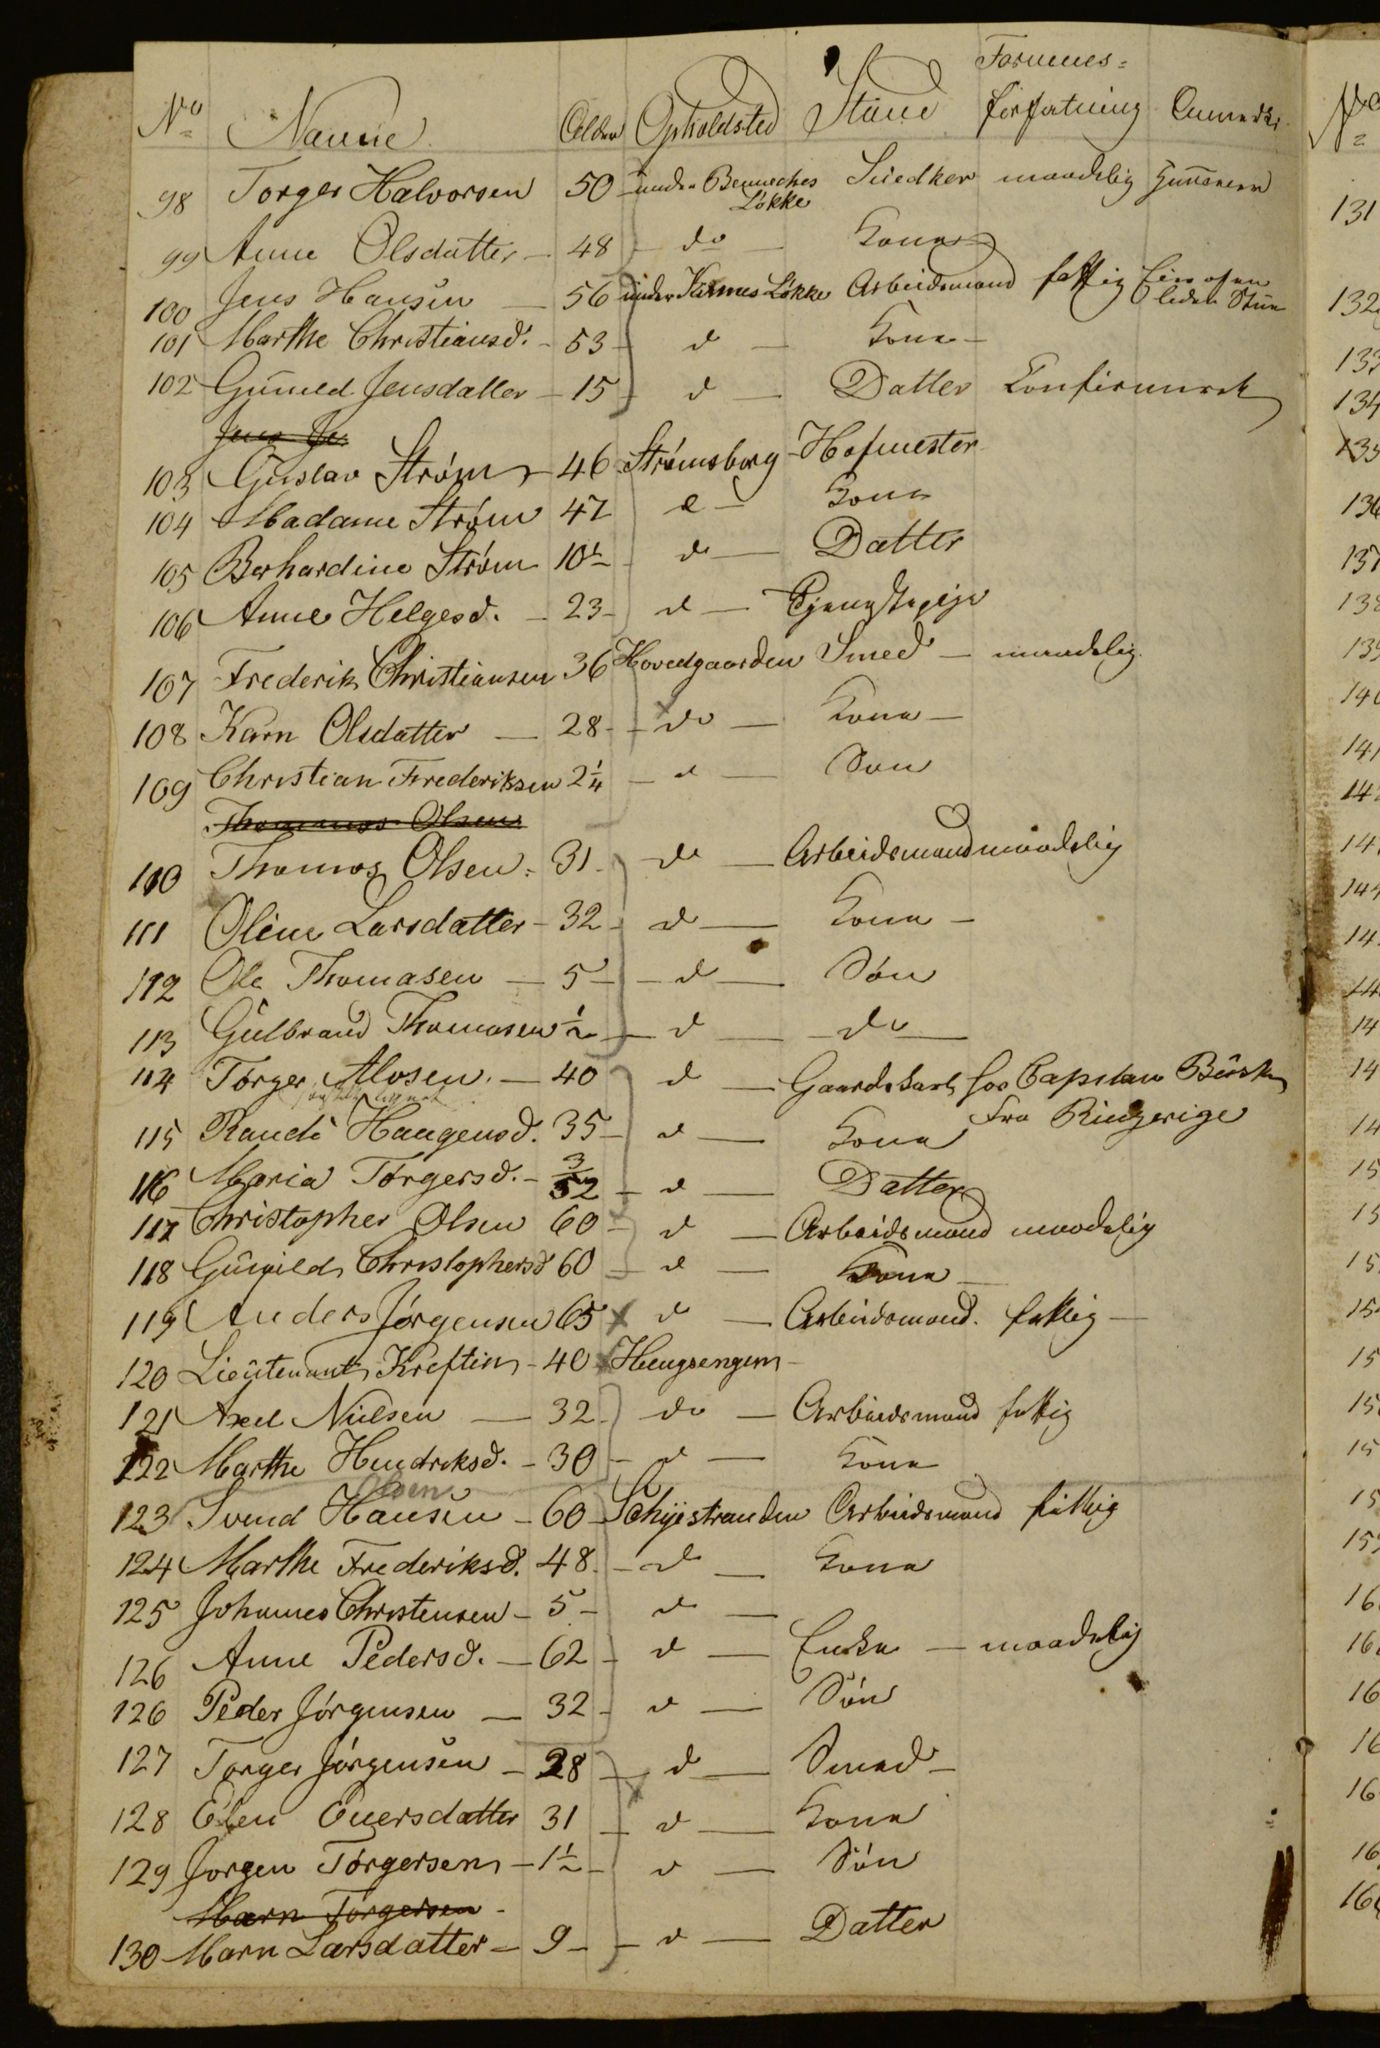 Formues=
No Navne Alder Opholdsted Stand forfatning Anmerk.
98 Torger Halvorsen 50 under Benneches Snedker maadelig
Løkke
99 Anne Olsdatter - 48 do - Kone
100 Jens Hansen - 56 under Løkke Arbeidsmand fattig
101 Marthe Christiansd. - 53 - d - Kone -
102 Guneld Jensdatter - 15 d - Datter Confirmeret
103 Gustav Strøm - 46 Strømsborg - Hofmester
104 Madame Strøm 47 d - Kone
105 Berhardine Strøm 10½ d - Datter
106 Anne Helgesd. - 23 - d - Tjenestepige
107 Frederik Christiansen 36 Hovedgaarden Smed - maadelig
108 Karn Olsdatter - 28 - do - Kone -
109 Christian Frederiksen 2¼ - d - Søn
Thommas Olsen
110 Thomas Olsen - 31 - do - Arbeidsmand maadelig
111 Oline Larsdatter - 32 - d - Kone -
112 Ole Thomasen - 5 - d - Søn
113 Gulbrand Thomasen ½ - d - do
114 Tørger Alosen. - 40 d - Gaardskarl hos Capitain
115 Randi Haagensd. 35 - d - Kone Fra Ringerige
116 Maria Tørgersd. - 3/52 - d - Datter
117 Christopher Olsen 60 - d - Arbeidsmand maadelig
118 Gunild Christophersd 60 - d - Kone -
119 Anders Jørgensen 65 x d - Arbeidsmand. fattig -
120 Lieutenant Kreftin - 40 Hengsengen -
121 Axel Nielsen - 32 - do - Arbeidsmand fattig
122 Marthe Hendriksd. - 30 - d - Kone
Olsen
123 Svend Hansen - 60 - Schyestranden Arbeidsmand fattig
124 Marthe Frederiksd. 48 - d - Kone
125 Johannes Christensen - 5 - d -
126 Anne Pedersd. - 62 - d - Enke - maadelig
126 Peder Jörgensen - 32 - d - Søn
127 Torger Jörgensen - 28 - d - Smed -
128 Elen Eversdatter 31 - d - Kone
129 Jorgen Tørgersen - 1½ - d - Søn
Marn Tørgersen -
130 Marn Larsdatter - 9 - d - Datter
No
131
132
133
134
135
136
137
138
139